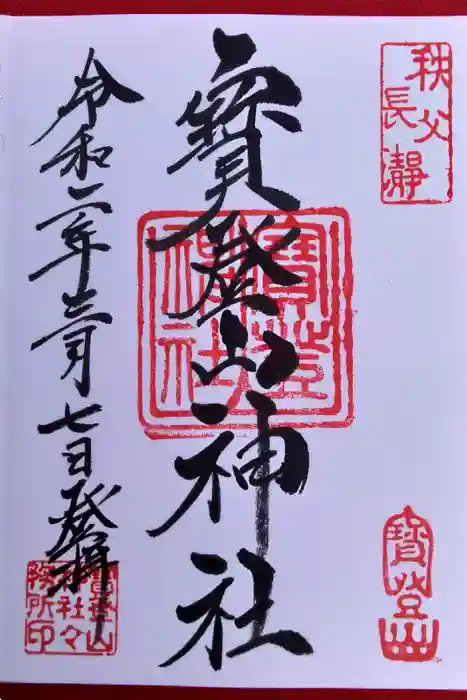 秩父
長瀞
寳登山神社
寳登山
神社
寳登山
令和二年三月七日登拝
寳登山
神社々
務所印